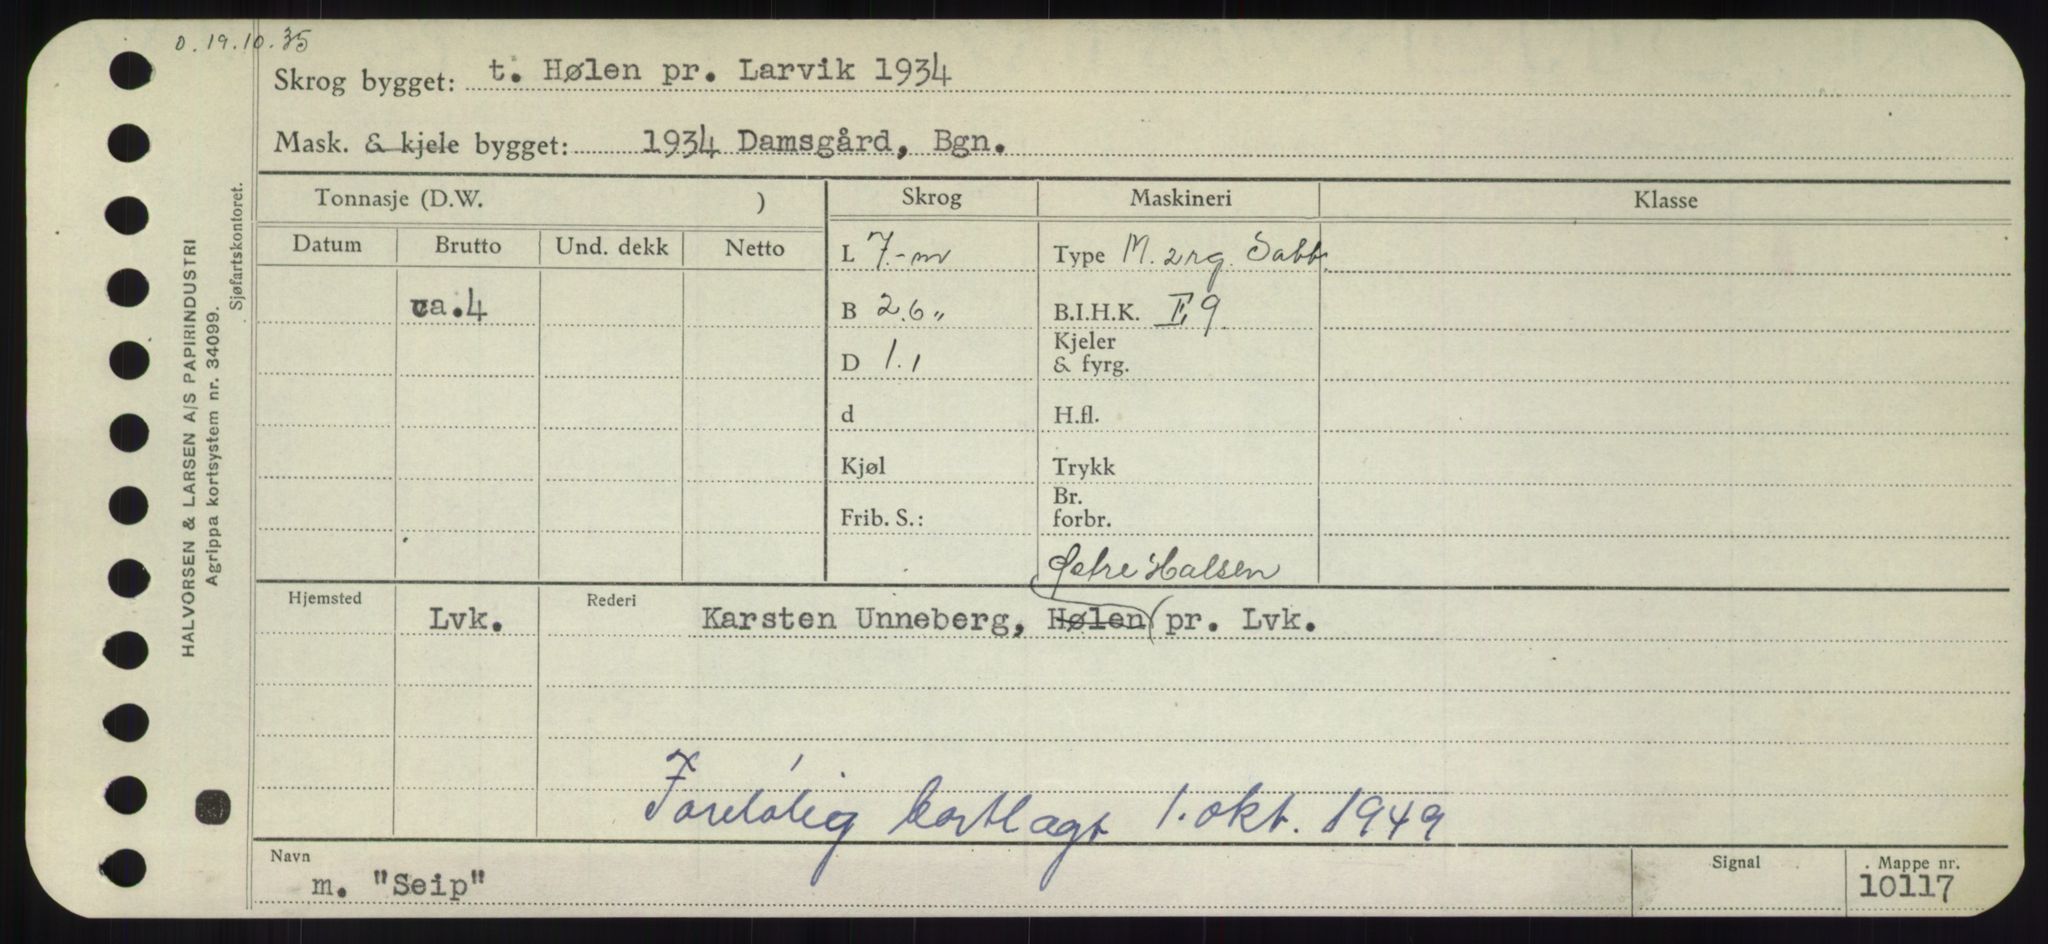 o. 19.10.35
Skrog bygget: t. Hølen pr. Larvik 1934
Mask. & kjele bygget: 1934 Damsgård, Bgn.
Tonnasje (D.W. ) Skrog Maskineri Klasse
Datum Brutto Und. dekk Netto
L 7.-m Type M. 2 Sabb.
ca.4 B 2.6 „ B.I.H.K. I, 9
D 1.1 Kjeler & fyrg.
d H.fl.
Kjøl Trykk
Frib. S.: Br. forbr.
Østre Halsen
Hjemsted Lvk. Rederi Karsten Unneberg, Hølen pr. Lvk.
Foreløbig bortlagt 1. okt. 1949
Navn m. "Seip" Signal Mappe nr. 10117
HALVORSEN & LARSEN A/S PAPIRINDUSTRI
Agrippa kortsystem nr. 34099.
Sjøfartskontoret.